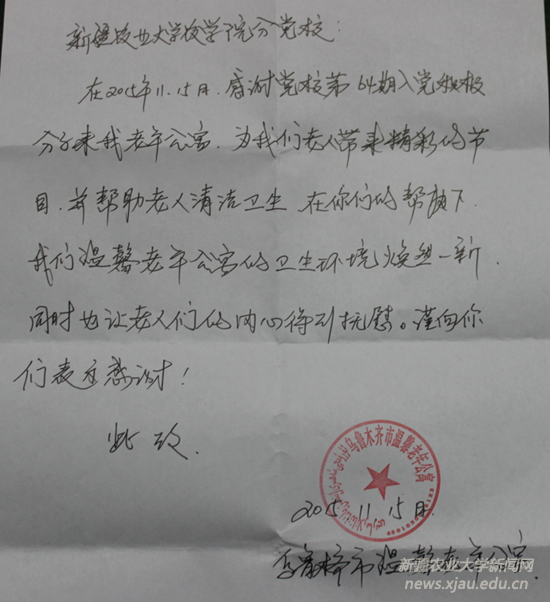 新疆农业大学牧学院分党校:
在2015年11.15日.感谢党校第64期入党积极
分子来我老年公寓.为我们老人带来精彩的节
目.并帮助老人清洁卫生.在你们的帮助下.
我们温馨老年公寓的卫生环境焕然一新.
同时也让老人们的内心得到抚慰。谨向你
们表示感谢!
此致.
乌鲁木齐市温馨老年公寓
2015.11.15日.
乌鲁木齐市温馨老年公寓.
新疆农业大学新闻网
news.xjau.edu.cn